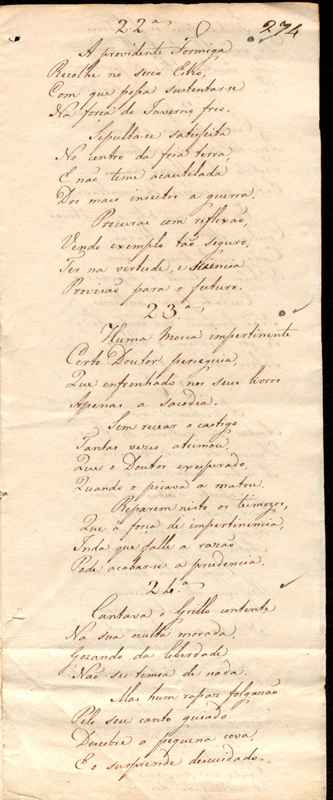 22.ª
274
A providente Formiga
Recolhe no seco Estio,
Com que possa sustentar-se
Na força do Inverno frio.
Sepulta-se satisfeita
No centro da fria terra,
E não teme acautelada
Dos mais insectos a guerra.
Procurae com reflexão,
Vendo exemplo tão seguro,
Ter na virtude, e sciencia
Provisão para o futuro.
23.ª
Huma Mosca impertinente
Certo Doutor perseguia,
Que enfronhado nos seus livros
Apenas a sacodia.
Sem recear o castigo
Tantas vezes ateimou,
Que o Doutor exesperado,
Quando o picava a matou.
Reparem nisto os teimozos,
Que à força de impertinencia,
Inda que falle a razão
Pode acabar-se a prudencia.
24.ª
Cantava o Grillo contente
Na sua oculta morada,
Gozando da liberdade
Não se temia de nada.
Mas hum rapaz folgazão
Pelo seu canto guiado
Descobre a pequena cova,
E o surprende descuidado.